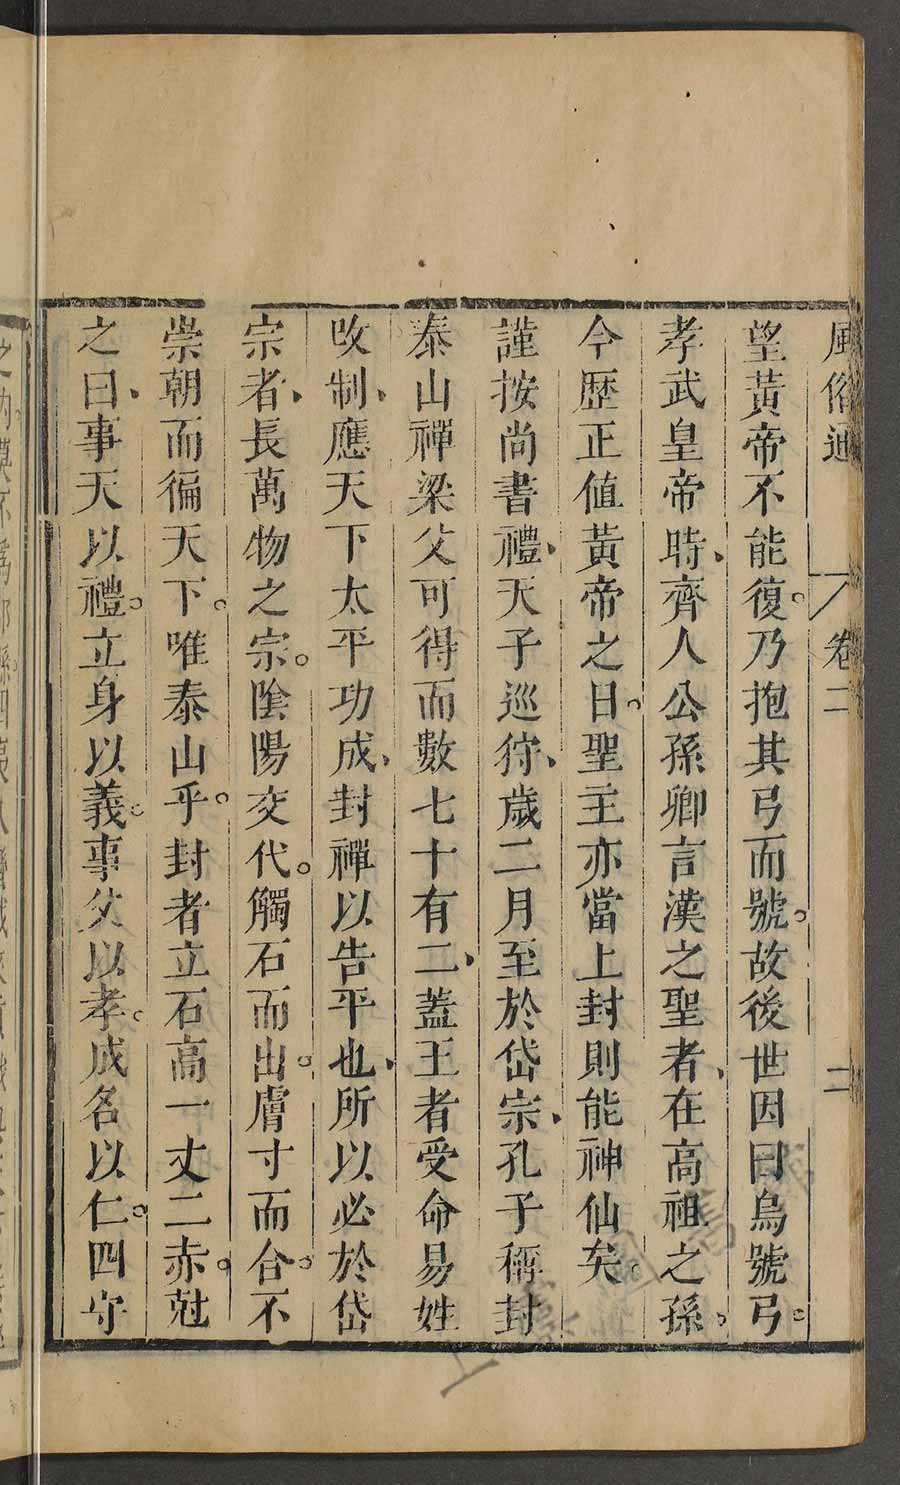 風俗通 卷二 二
望黃帝不能復。乃抱其弓而號。故後世因曰烏號弓。
孝武皇帝時、齊人公孫卿言漢之聖者、在高祖之孫。
今歷正值黃帝之日。聖主亦當上封則能神仙矣。
謹按尚書禮、天子巡狩、歲二月至於岱宗、孔子稱封
泰山禪梁父可得而數七十有二、蓋王者受命易姓
攺制、應天下太平功成、封禪以告平也、所以必於岱
宗者、長萬物之宗。陰陽交代。觸石而出。膚寸而合。不
崇朝而徧天下。唯泰山乎。封者立石高一丈二赤。尅
之曰、事天以禮。立身以義。事父以孝。成名以仁。四守